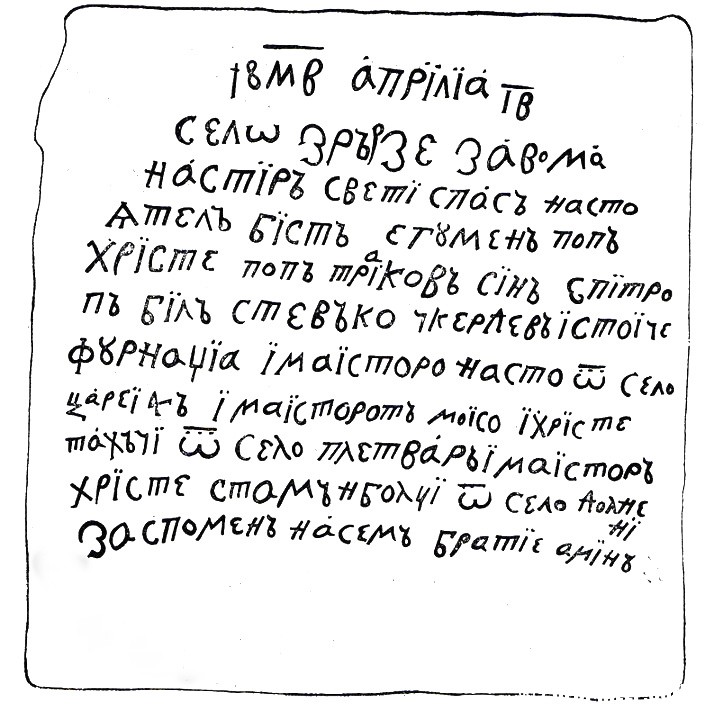 †8М̅В̅ а́прїлїа́ І̅В̅
селѡ Зръзе За́вома́
на́стїръ светї спа́съ насто
ѧтелъ бїстъ егꙋменъ попъ
хрїсте попъ трїа́ковъ сїнъ епїтро
пъ бїлъ стевъко чкерлевъ їстоїче
фꙋрнаџїа їмаїсторо насто ѿ село
ца́реї їмаїсторотъ моїсо їхрїсте
та́хъчї ѿ село плетва́ръї маїсторъ
хрїсте стамънболџї ѿ село долне
нї
За споменъ на́семъ братїе амїнъ